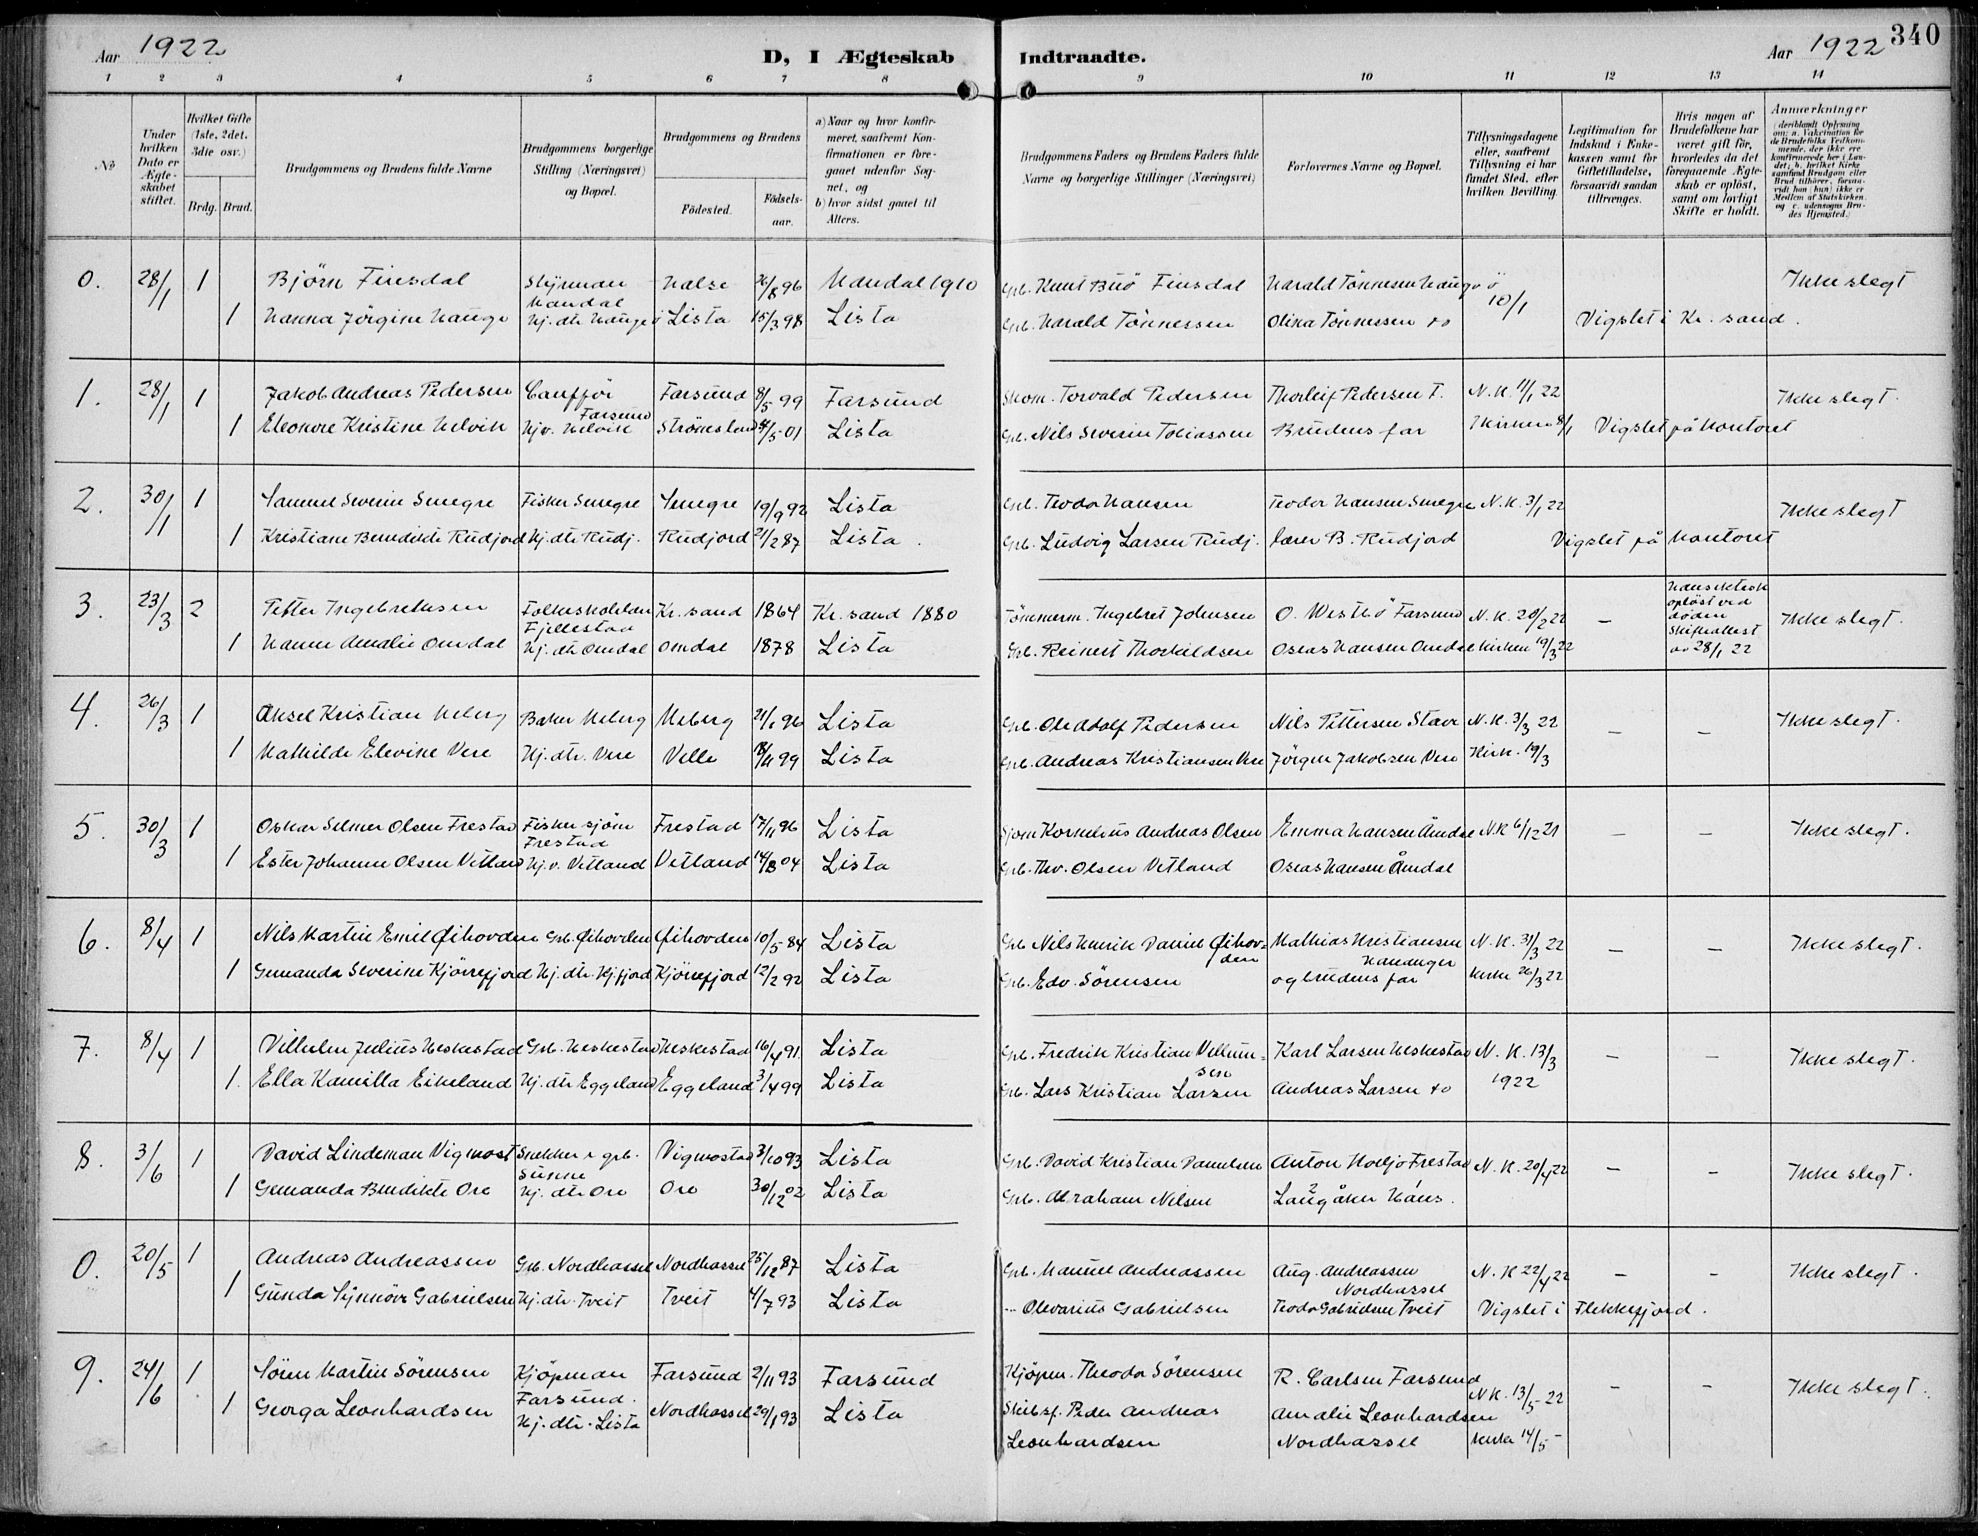 Aar 1922
D, I Ægteskab Indtraadte.
Aar 1922 340
1 2 3 4 5 6 7 8 9 10 11 12 13 14
No
Under hvilken Dato er Ægteskabet stiftet.
Hvilket Gifte (1ste, 2det, 3die osv.)
Brdg. Brud.
Brudgommens og Brudens fulde Navne
Brudgommens borgerlige Stilling (Næringsvei) og Bopæl.
Brudgommens og Brudens
Födested.
Födselsaar.
a) Naar og hvor konfirmeret, saafremt Konfirmationen er foregaaet udenfor Sognet, og
b) hvor sidst gaaet til Alters.
Brudgommens Faders og Brudens Faders fulde Navne og borgerlige Stillinger (Næringsvei)
Forlovernes Navne og Bopæl.
Tillysningsdagene eller, saafremt Tillysning ei har fundet Sted, efter hvilken Bevilling.
Legitimation for Indskud i Enkekassen samt for Giftetilladelse, forsaavidt saadan tiltrænges.
Hvis nogen af Brudefolkene har været gift før, hvorledes da det foregaaende Ægteskab er oplöst, samt om lovligt Skifte er holdt.
Anmærkninger
(deriblandt Oplysning om: a. Vakcination for de Brudefolks Vedkommende, der ikke ere konfirmerede her i Landet; b. hvilket Kirkesamfund Brudgom eller Brud tilhörer, forsaavidt han (hun) ikke er Medlem af Statskirken, og c. udensogns Brudes Hjemsted.)
0. 28/1 1 Björn Finsdal Styrman Mandal Halse 26/8 96 Mandal 1910 Grb. Knut Buö Finsdal Harald Tönnesen Hauge 10/1 Ikke slegt
1 Hanna Jörgine Hauge Hj. dtr Hauge Lista 15/3 98 Lista Grb. Harald Tönnessen Olina Tönnessen do Vigslet i Kr. sand.
1. 28/1 1 Jakob Andreas Pedersen Farsund Farsund 8/5 99 Farsund Skom. Torvald Pedersen Thorleif Pedersen F. N. K. 11/1 22 Ikke slegt.
1 Eleonore Kristine Helvik Hj.v. Helvik Strönesland 4/5 01 Lista Grb. Nils Severin Tobiassen Brudens far Kirken 8/1 Vigslet på Kontoret
2. 30/1 1 Samuel Severin Snegre Fisker Snegre Snegre 19/9 92 Lista Grb. Teodor Hansen Teodor Hansen Snegre N. K. 3/1 22 Ikke slegt
1 Kristiane Benedikte Rudjord Hj. dtr Rudj. Rudjord 21/2 87 Lista. Grb. Ludvig Larsen Rudj. B. Rudjord Vigslet på Kontoret
3. 23/3 2 Petter Ingebretsen Fjellestad Kr. sand 1864 Kr. sand 1880 Tömmerm. Ingebret Johnsen O. Westbö Farsund N. K. 20/2 22 – oplöst ved döden Skifteattest av 28/1 22 Ikke slegt.
1 Hanne Amalie Omdal Hj. dtr Omdal Omdal 1878 Lista Grb. Reinert Thorkildsen Oseas Hansen Omdal Kirken 19/3 22
4. 26/3 1 Aksel Kristian Meberg Baker Meberg Meberg 21/1 96 Lista Grb. Ole Adolf Pedersen Nils Pettersen Stave N. K. 3/3 22 – – Ikke slegt.
1 Mathilde Elevine Vere Hj. dtr. Vere Velle 8/11 99 Lista Grb. Andreas Kristiansen Vere Jörgen Jakobsen Vere Kirk. 19/3
5. 30/3 1 Oskar Selmer Olsen Frestad Fisker sjöm Frestad Frestad 17/11 96 Lista Sjöm Kornelius Andreas Olsen Emma Hansen Åmdal N.K 6/12 21 – – Ikke slegt.
1 Ester Johanne Olsen Vetland Hj. v. Vetland Vetland 14/8 04 Lista Grb. Thv. Olsen Vetland Oseas Hansen Åmdal
6. 8/4 1 Nils Martin Emil Øihovden Grb. Øihovden Øihovden 10/5 84 Lista Grb Nils Henrik Daniel Øihovden Mathias Kristiansen Hananger N. K. 31/3 22 – – Ikke slegt.
1 Gemanda Severine Kjörrefjord Hj. dtr. Kj.fjord Kjörrefjord 12/2 92 Lista Grb. Edv. Sörensen og brudens far Kirke 26/3 22
7. 8/4 1 Vilhelm Julius Heskestad Grb. Heskestad Heskestad 16/4 91. Lista Grb. Fredrik Kristian Vellumsen Karl Larsen Heskestad N. K. 13/3 1922 – – Ikke slegt.
1. Ella Kamilla Eikeland Hj. dtr Eggeland Eggeland 3/4 99 Lista Grb. Lars Kristian Larsen Andreas Larsen do
8. 3/6 1 David Lindeman Vigmost Snekker & grb. Sunne Vigmostad 3/10 93 Lista Grb. David Kristian Danielsen Anton Frestad N. K. 20/4 22 – – Ikke slegt.
1 Gemanda Bendikte Ore Hj. dtr Ore Ore 30/12 02 Lista Grb. Abraham Nilsen Langåker
0. 20/5 1 Andreas Andreassen Grb. Nordhassel Nordhassel 25/12 87 Lista Grb. Manne Andreassen Aug. Andreassen Nordhassel N. K 22/4 22 – – Ikke slegt.
1 Gunda Synnöve Gabrielsen Hj. dtr. Tveit Tveit 4/7 93 Lista – Olevarius Gabrielsen Teodor Gabrielsen Tveit Vigslet i Flekkefjord.
9. 24/6 1 Sören Martin Sörensen Kjöpman Farsund. Farsund 2/11 93 Farsund Kjöpm. Theodor Sörensen R. Carlsen Farsund N K. 13/5 22 – – Ikke slegt.
1 Georga Leonhardsen Hj. dtr. Lista Nordhassel 29/1 93 Lista Skibsf. Peder Andreas Leonhardsen Amalie Leonhardsen Nordhassel Kirke 14/5 –